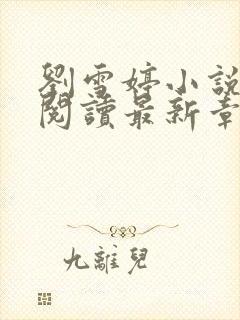 劉雪婷小說
閱讀最新章
九離兒